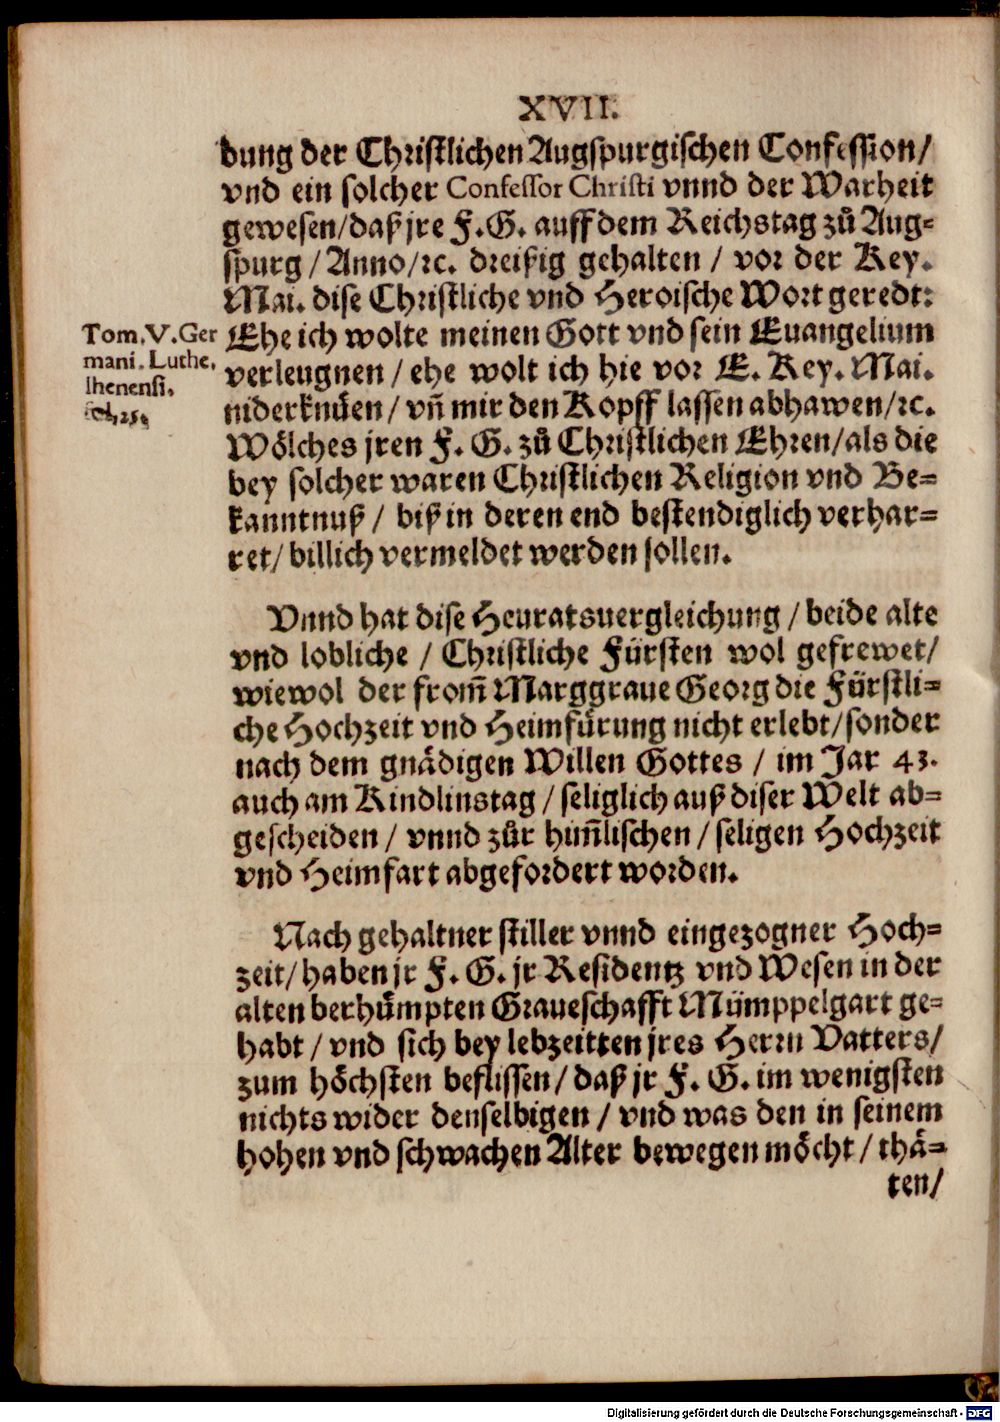 XVII.
dung der Christlichen Augspurgischen Confession/
vnd ein solcher Confessor Christi vnnd der Warheit
gewesen/daß jre F.G. auff dem Reichstag zů Aug=
spurg / Anno/ꝛc. dreißig gehalten / vor der Key.
Mai. dise Christliche vnd Heroische Wort geredt:
Tom. V. Ger
mani. Luthe,
Ihenensi.
Ehe ich wolte meinen Gott vnd sein Euangelium
verleugnen / ehe wolt ich hie vor E. Key. Mai.
niderknüen / vñ mir den Kopff lassen abhawen/ꝛc.
Wölches jren F. G. zů Christlichen Ehren/als die
bey solcher waren Christlichen Religion vnd Be=
kanntnuß / biß in deren end bestendiglich verhar=
ret/ billich vermeldet werden sollen.
Vnnd hat dise Heuratsuergleichung / beide alte
vnd lobliche / Christliche Fürsten wol gefrewet/
wiewol der from̃ Marggraue Georg die Fürstli=
che Hochzeit vnd Heimfürung nicht erlebt/sonder
nach dem gnädigen Willen Gottes / im Jar 43.
auch am Kindlinstag / seliglich auß diser Welt ab=
gescheiden / vnnd zůr him̃lischen / seligen Hochzeit
vnd Heimfart abgefordert worden.
Nach gehaltner stiller vnnd eingezogner Hoch=
zeit/ haben jr F. G. jr Residentz vnd Wesen in der
alten berhůmpten Graueschafft Mümppelgart ge=
habt / vnd sich bey lebzeitten jres Herrn Vatters/
zum höchsten beflissen/ daß jr F. G. im wenigsten
nichts wider denselbigen / vnd was den in seinem
hohen vnd schwachen Alter bewegen möcht / thä=
ten/
Digitalisierung gefördert durch die Deutsche Forschungsgemeinschaft - DFG